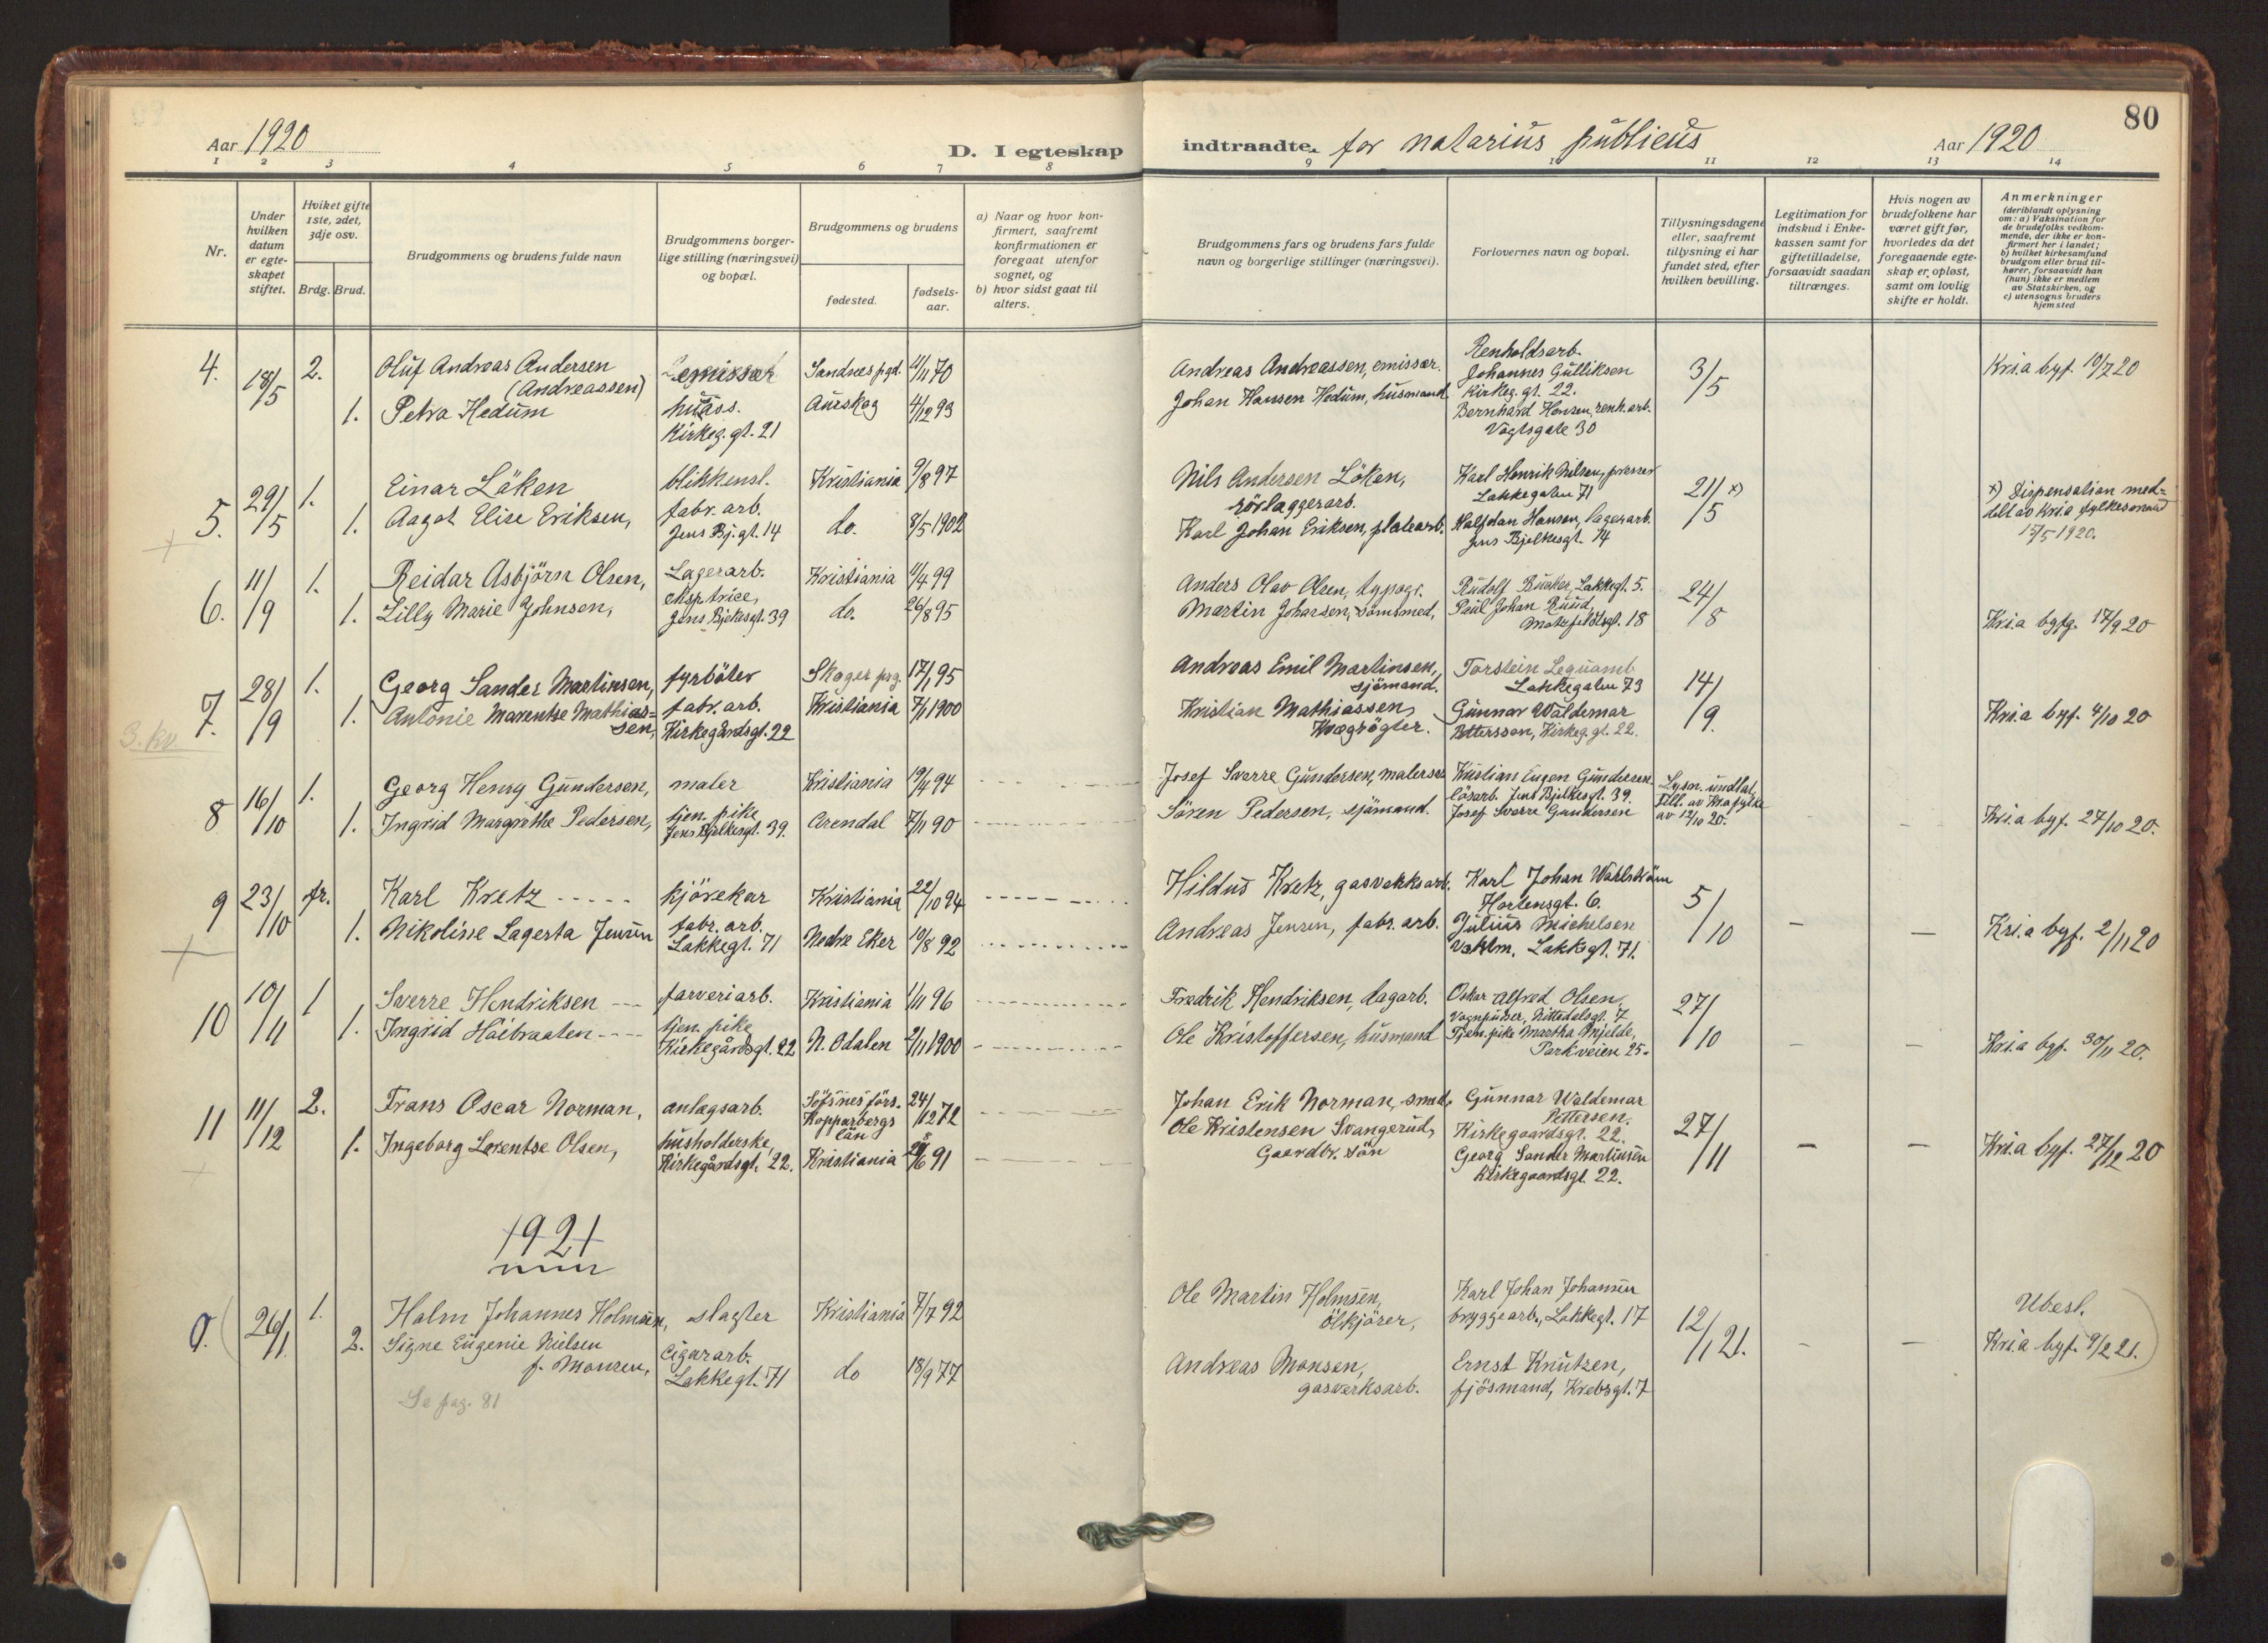 80
Aar 1920
D. I egteskap indtraadte for notarius publicus
Aar 1920
1 2 3 4 5 6 7 8 9 11 12 13 14
Nr.
Under hvilken datum er egteskapet stiftet.
Hvilket gifte 1ste, 2det, 3dje osv.
Brdg. Brud.
Brudgommens og brudens fulde navn
Brudgommens borgerlige stilling (næringsvei) og bopæl.
Brudgommens og brudens
fødested. fødselsaar.
a) Naar og hvor konfirmert, saafremt konfirmationen er foregaat utenfor sognet, og
b) hvor sidst gaat til alters.
Brudgommens fars og brudens fars fulde navn og borgerlige stillinger (næringsvei).
Forlovernes navn og bopæl.
Tillysningsdagene eller, saafremt tillysning ei har fundet sted, efter hvilken bevilling.
Legitimation for indskud i Enkekassen samt for giftetilladelse, forsaavidt saadan tiltrænges.
Hvis nogen av brudefolkene har været gift før, hvorledes da det foregaaende egteskap er opløst, samt om lovlig skifte er holdt.
Anmerkninger
(deriblandt oplysning om: a) Vaksination for de brudefolks vedkommende, der ikke er konfirmert her i landet; b) hvilket kirkesamfund brudgom eller brud tilhører, forsaavidt han (hun) ikke er medlem av Statskirken, og c) utensogns bruders hjemsted
4. 18/5 2. Oluf Andreas Andersen emissær Sandnes pgd. 11/11 70
(Andreassen)
1. Petra Hedum Aueskog 4/12 93
Kirkeg.gt. 21
Andreas Andreassen, emissær.
Johan Hansen Hedum, husmand
Renholdsarb.
Johannes Gulliksen
Kirkeg.gt. 22.
Bernhard Hansen, renh.arb.
Vogtsgate 30
3/5
Kria byf. 10/7 20
5. 29/5 1. Einar Löken blikkensl. Kristiania 9/8 97
1. Aagot Elise Eriksen, fabr. arb.
Jens Bj.gt. 14 do. 8/5 1902
Nils Andersen Löken,
rörlæggerarb.
Karl Johan Eriksen, platearb.
Karl Henrik Nilsen, presser
Lakkegaten 71
Halfdan Hansen, lagerarb.
Jens Bjelkesgt. 14
21/5 x)
x) Dispensation meddelt av Kria fylkesmand
15/5 1920.
6. 11/9 1. Reidar Asbjörn Olsen, Lagerarb. Kristiania 11/4 99
1. Lilly Marie Johnsen, eksptrice,
Jens Bjelkesgt. 39 do. 26/8 95
Anders Olav Olsen, typogr.
Martin Johansen,
Paul Johan Ruud,
24/8
Kria byfg. 17/9 20
7. 28/9 1. Georg Sander Martinsen, fyrböter Skoger prg. 17/1 95
1. Antonie Marentse Mathiassen, fabr. arb. Kristiania 7/11 1900
Kirkegårdsgt. 22
3. kv
Andreas Emil Martinsen,
sjömand.
Kristian Mathiassen
Kvægrögter.
Torstein
Lakkegaten 73
Gunnar Waldemar
Pettersson, Kirkeg.gt. 22.
14/9.
Kria byf. 4/10 20
8 16/10 1. Georg Henry Gundersen, maler Kristiania 19/4 94
1. Ingrid Margrethe Pedersen, tjen. pike
Jens Bjelkesgt. 39. Arendal 7/11 90
Josef Sverre Gundersen, malersv.
Sören Pedersen, sjömand.
Kristian Eugen Gundersen
lösarb. Jens Bjelkesgt. 39.
Josef Sverre Gundersen
Lysn. undlat.
Till. av Kria fylke
av 12/10 20.
Kria byf. 27/10 20.
9 23/10 fr. Karl Kretz kjörekar Kristiania 22/10 94
1. Nikoline Lagerta Jensen fabr. arb.
Lakkegt. 71 Nedre Eker 10/8 92
Hildus Kretz, gasverksarb.
Andreas Jensen, fabr. arb.
Karl Johan Wahlström
Hortensgt. 6.
Julius Michelsen
Lakkegt. 71.
5/10
Kria byf. 2/11 20
10 10/11 1 Sverre Hendriksen farveriarb. Kristiania 1/11 96
1. Ingrid Haibraaten tjen. pike
Kirkegårdsgt. 22 N. Odalen 2/11 1900
Fredrik Hendriksen, dagarb.
Ole Kristoffersen, husmand
Oskar Alfred Olsen,
Vognpudser, Nittedalsgt. 7
Tjen. pike Martha Mjelde,
Parkveien 25.
27/10
Kria byf. 30/11 20.
11 11/12 2. Frans Oscar Norman, anlægsarb.
Kopparbergs
län 24/12 72
1. Ingeborg Lorentse Olsen, husholderske,
Kirkegårdsgt. 22. Kristiania 28/6 91
Johan Erik Norman, smed.
Ole Kristensen Svangerud,
Gaardbr. sön
Gunnar Waldemar
Pettersen.
Kirkegaardsgt. 22.
Georg Sander Martinsen
Kirkegaardsgt. 22.
27/11
Kria byf. 27/12 20
1921
0. 26/1 1. Halm Johannes Holmsen, slagter Kristiania 7/7 92
2. Signe Eugenie Nielsen
f. Monsen, cigararb.
Lakkegt. 71 do 18/9 77
Se pag. 81
Ole Martin Holmsen,
ölkjörer,
Andreas Monsen,
gasverksarb.
Karl Johan Johansen
bryggearb., Lakkegt. 17
Ernst Knutzen,
fjösmand, Krebsgt. 7
12/1 21.
Ubesl.
Kria byf. 9/2 21.